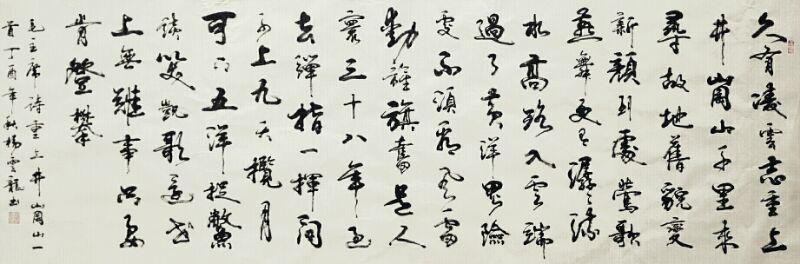 久有凌雲志重上
井崗山千里來
尋故地舊貌變
新顏到處鶯歌
燕舞更有潺潺流
水高路入雲端
過了黃洋界險
處不須看風雷
動旌旗奮是人
寰三十八年過
去彈指一揮間
可上九天攬月
可下五洋捉鱉
談笑凱歌還世
上無難事只要
肯登攀
毛主席詩重上井崗山一
首丁酉年秋楊雲龍書